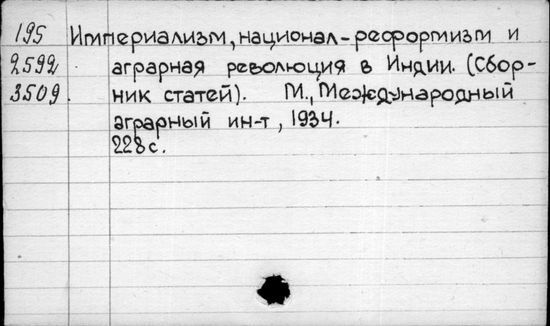 195 Империализм, национал-реформизм и
2592 аграрная революция в Индии. (Сбор-
3509. ник статей). М., Международный
аграрный ин-т, 1934.
228 с.